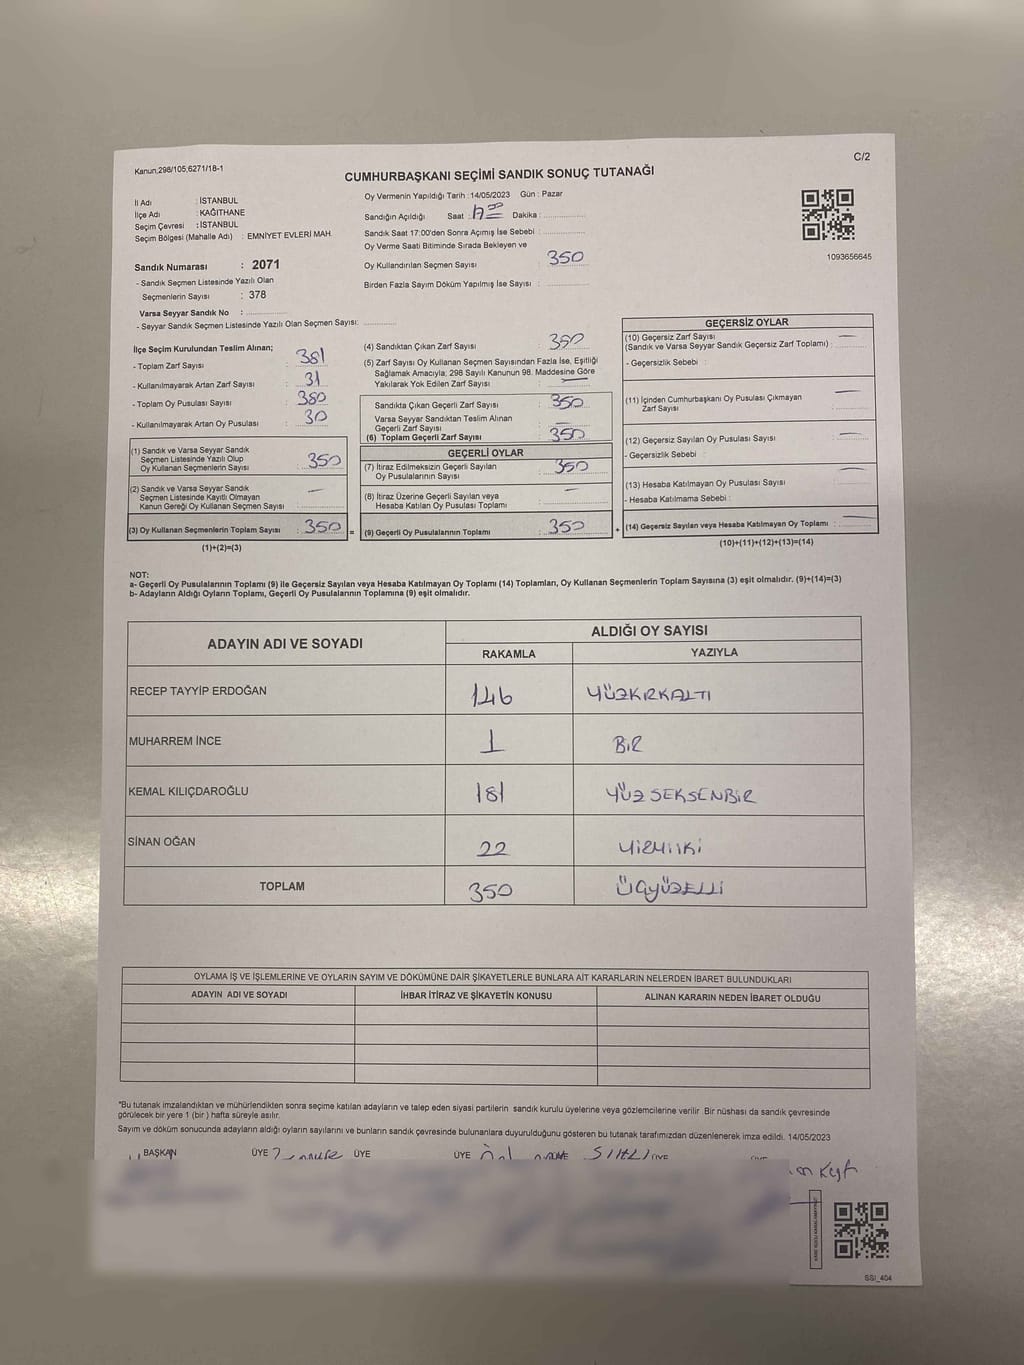 Kanun,298/105;6271/18-1
C/2
CUMHURBAŞKANI SEÇİMİ SANDIK SONUÇ TUTANAĞI
İl Adı : İSTANBUL
İlçe Adı : KAĞITHANE
Seçim Çevresi : İSTANBUL
Seçim Bölgesi (Mahalle Adı) : EMNİYET EVLERİ MAH.
Sandık Numarası : 2071
- Sandık Seçmen Listesinde Yazılı Olan
Seçmenlerin Sayısı : 378
Varsa Seyyar Sandık No :
- Seyyar Sandık Seçmen Listesinde Yazılı Olan Seçmen Sayısı:
Oy Vermenin Yapıldığı Tarih : 14/05/2023 Gün : Pazar
Sandığın Açıldığı Saat : 17 00 Dakika :
Sandık Saat 17:00'den Sonra Açımış İse Sebebi :
Oy Verme Saati Bitiminde Sırada Bekleyen ve
Oy Kullandırılan Seçmen Sayısı : 350
Birden Fazla Sayım Döküm Yapılmış İse Sayısı :
1093656645
İlçe Seçim Kurulundan Teslim Alınan;
- Toplam Zarf Sayısı : 381
- Kullanılmayarak Artan Zarf Sayısı : 31
- Toplam Oy Pusulası Sayısı : 380
- Kullanılmayarak Artan Oy Pusulası : 30
(1) Sandık ve Varsa Seyyar Sandık
Seçmen Listesinde Yazılı Olup
Oy Kullanan Seçmenlerin Sayısı : 350
(2) Sandık ve Varsa Seyyar Sandık
Seçmen Listesinde Kayıtlı Olmayan
Kanun Gereği Oy Kullanan Seçmen Sayısı : —
(3) Oy Kullanan Seçmenlerin Toplam Sayısı : 350 =
(1)+(2)=(3)
(4) Sandıktan Çıkan Zarf Sayısı : 350
(5) Zarf Sayısı Oy Kullanan Seçmen Sayısından Fazla İse, Eşitliği
Sağlamak Amacıyla; 298 Sayılı Kanunun 98. Maddesine Göre
Yakılarak Yok Edilen Zarf Sayısı : —
Sandıkta Çıkan Geçerli Zarf Sayısı : 350
Varsa Seyyar Sandıktan Teslim Alınan
Geçerli Zarf Sayısı : —
(6) Toplam Geçerli Zarf Sayısı : 350
GEÇERLİ OYLAR
(7) İtiraz Edilmeksizin Geçerli Sayılan
Oy Pusulalarının Sayısı : 350
(8) İtiraz Üzerine Geçerli Sayılan veya
Hesaba Katılan Oy Pusulası Toplamı : —
(9) Geçerli Oy Pusulalarının Toplamı : 350 +
GEÇERSİZ OYLAR
(10) Geçersiz Zarf Sayısı
(Sandık ve Varsa Seyyar Sandık Geçersiz Zarf Toplamı) : —
- Geçersizlik Sebebi :
(11) İçinden Cumhurbaşkanı Oy Pusulası Çıkmayan
Zarf Sayısı : —
(12) Geçersiz Sayılan Oy Pusulası Sayısı : —
- Geçersizlik Sebebi :
(13) Hesaba Katılmayan Oy Pusulası Sayısı : —
- Hesaba Katılmama Sebebi :
(14) Geçersiz Sayılan veya Hesaba Katılmayan Oy Toplamı : —
(10)+(11)+(12)+(13)=(14)
NOT:
a- Geçerli Oy Pusulalarının Toplamı (9) ile Geçersiz Sayılan veya Hesaba Katılmayan Oy Toplamı (14) Toplamları, Oy Kullanan Seçmenlerin Toplam Sayısına (3) eşit olmalıdır. (9)+(14)=(3)
b- Adayların Aldığı Oyların Toplamı, Geçerli Oy Pusulalarının Toplamına (9) eşit olmalıdır.
ADAYIN ADI VE SOYADI
ALDIĞI OY SAYISI
RAKAMLA YAZIYLA
RECEP TAYYİP ERDOĞAN 146 YÜZKIRKALTI
MUHARREM İNCE 1 BİR
KEMAL KILIÇDAROĞLU 181 YÜZ SEKSENBİR
SİNAN OĞAN 22 YİRMİİKİ
TOPLAM 350 ÜÇYÜZELLİ
OYLAMA İŞ VE İŞLEMLERİNE VE OYLARIN SAYIM VE DÖKÜMÜNE DAİR ŞİKAYETLERLE BUNLARA AİT KARARLARIN NELERDEN İBARET BULUNDUKLARI
ADAYIN ADI VE SOYADI İHBAR İTİRAZ VE ŞİKAYETİN KONUSU ALINAN KARARIN NEDEN İBARET OLDUĞU
*Bu tutanak imzalandıktan ve mühürlendikten sonra seçime katılan adayların ve talep eden siyasi partilerin sandık kurulu üyelerine veya gözlemcilerine verilir Bir nüshası da sandık çevresinde
görülecek bir yere 1 (bir ) hafta süreyle asılır.
Sayım ve döküm sonucunda adayların aldığı oyların sayılarını ve bunların sandık çevresinde bulunanlara duyurulduğunu gösteren bu tutanak tarafımızdan düzenlenerek imza edildi. 14/05/2023
BAŞKAN ÜYE ÜYE ÜYE
SSI_404